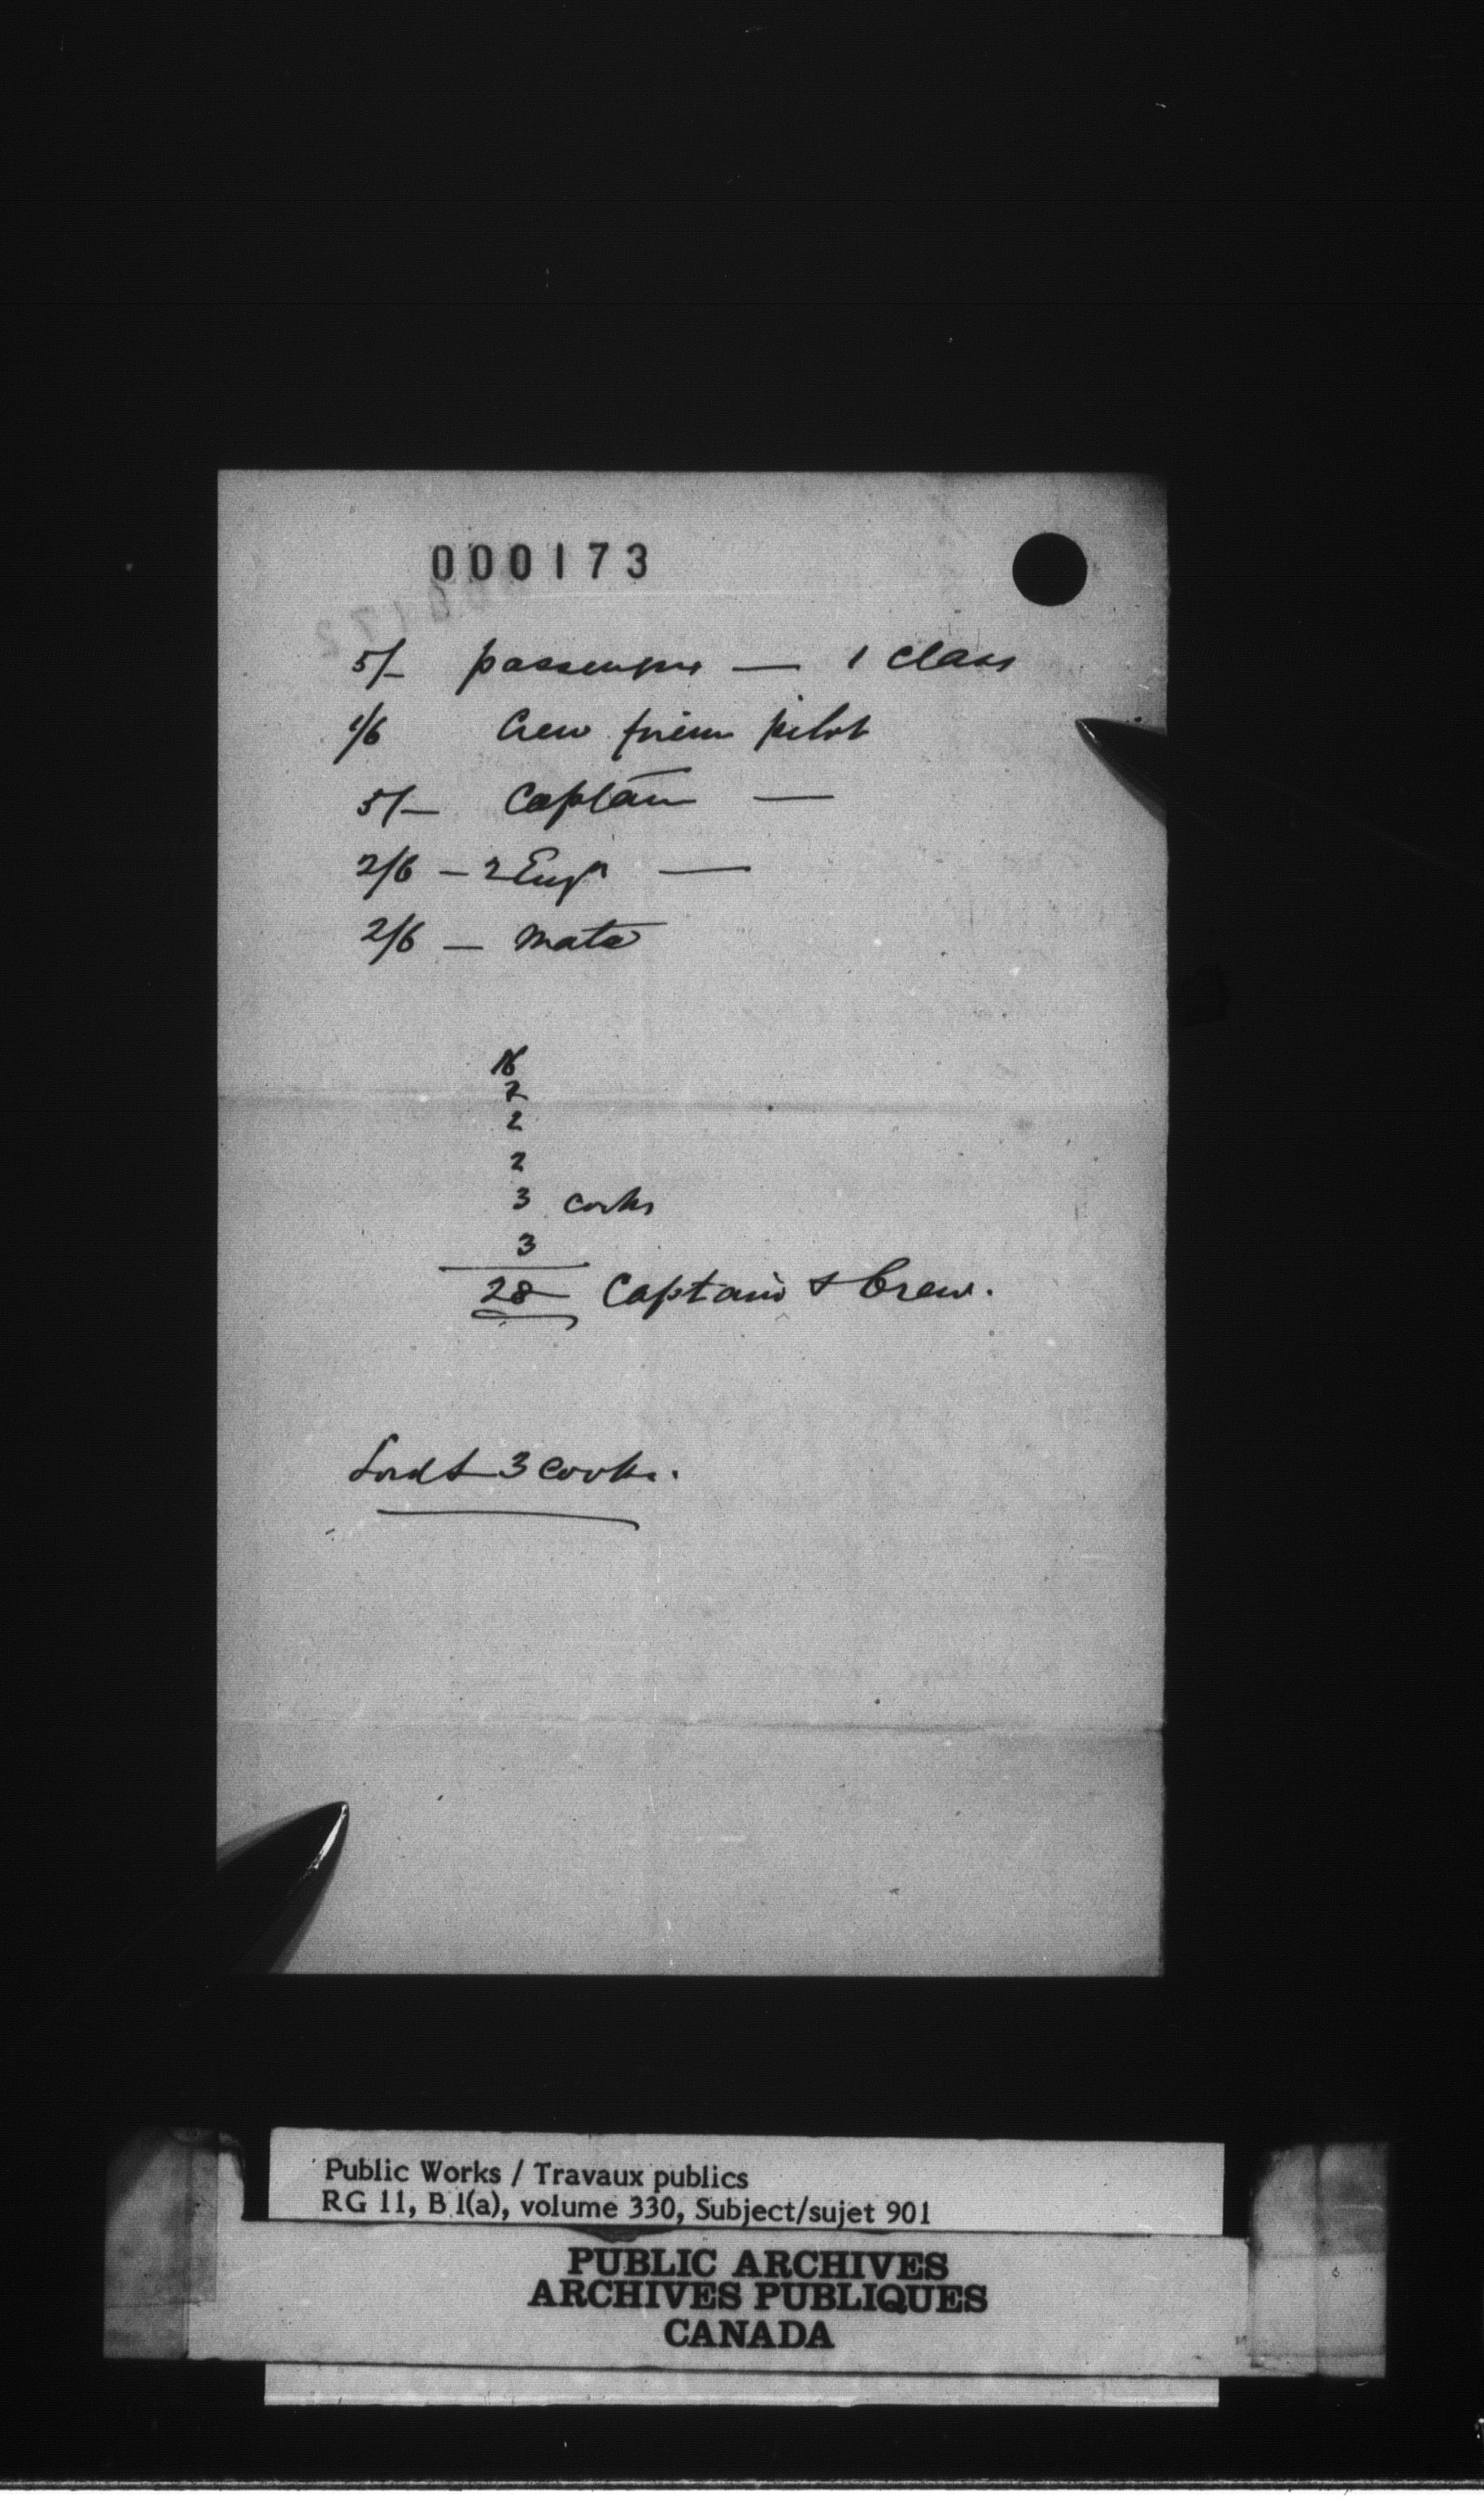 000173
5/- passengers — 1 class
1/6 Crew firemen pilot
5/- Captain —
2/6 — 2 Engr —
2/6 — Mate
16
2
2
2
3 cooks
3
28 Captain & Crew.
3 cooks.
Public Works / Travaux publics
RG 11, B 1(a), volume 330, Subject/sujet 901
PUBLIC ARCHIVES
ARCHIVES PUBLIQUES
CANADA